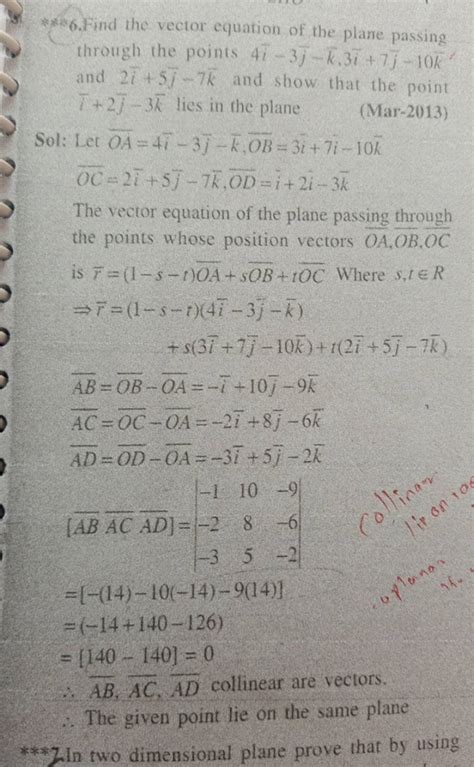 ***6.Find the vector equation of the plane passing
through the points 4i̅ − 3j̅ − k̅, 3i̅ + 7j̅ − 10k̅
and 2i̅ + 5j̅ − 7k̅ and show that the point
i̅ + 2j̅ − 3k̅ lies in the plane (Mar-2013)
Sol: Let OA = 4i̅ − 3j̅ − k̅, OB = 3i̅ + 7i̅ − 10k̅
OC = 2i̅ + 5j̅ − 7k̅, OD = i̅ + 2i̅ − 3k̅
The vector equation of the plane passing through
the points whose position vectors OA, OB, OC
is r̅ = (1 − s − t)OA + sOB + tOC Where s,t ∈ R
⇒ r̅ = (1 − s − t)(4i̅ − 3j̅ − k̅)
+ s(3i̅ + 7j̅ − 10k̅) + t(2i̅ + 5j̅ − 7k̅)
AB = OB − OA = −i̅ + 10j̅ − 9k̅
AC = OC − OA = −2i̅ + 8j̅ − 6k̅
AD = OD − OA = −3i̅ + 5j̅ − 2k̅
|−1 10 −9|
[AB AC AD] = |−2 8 −6|
|−3 5 −2|
Collinear
lie on
= [−(14) − 10(−14) − 9(14)]
= (−14 + 140 − 126)
= [140 − 140] = 0
∴ AB, AC, AD collinear are vectors.
∴ The given point lie on the same plane
***7.In two dimensional plane prove that by using